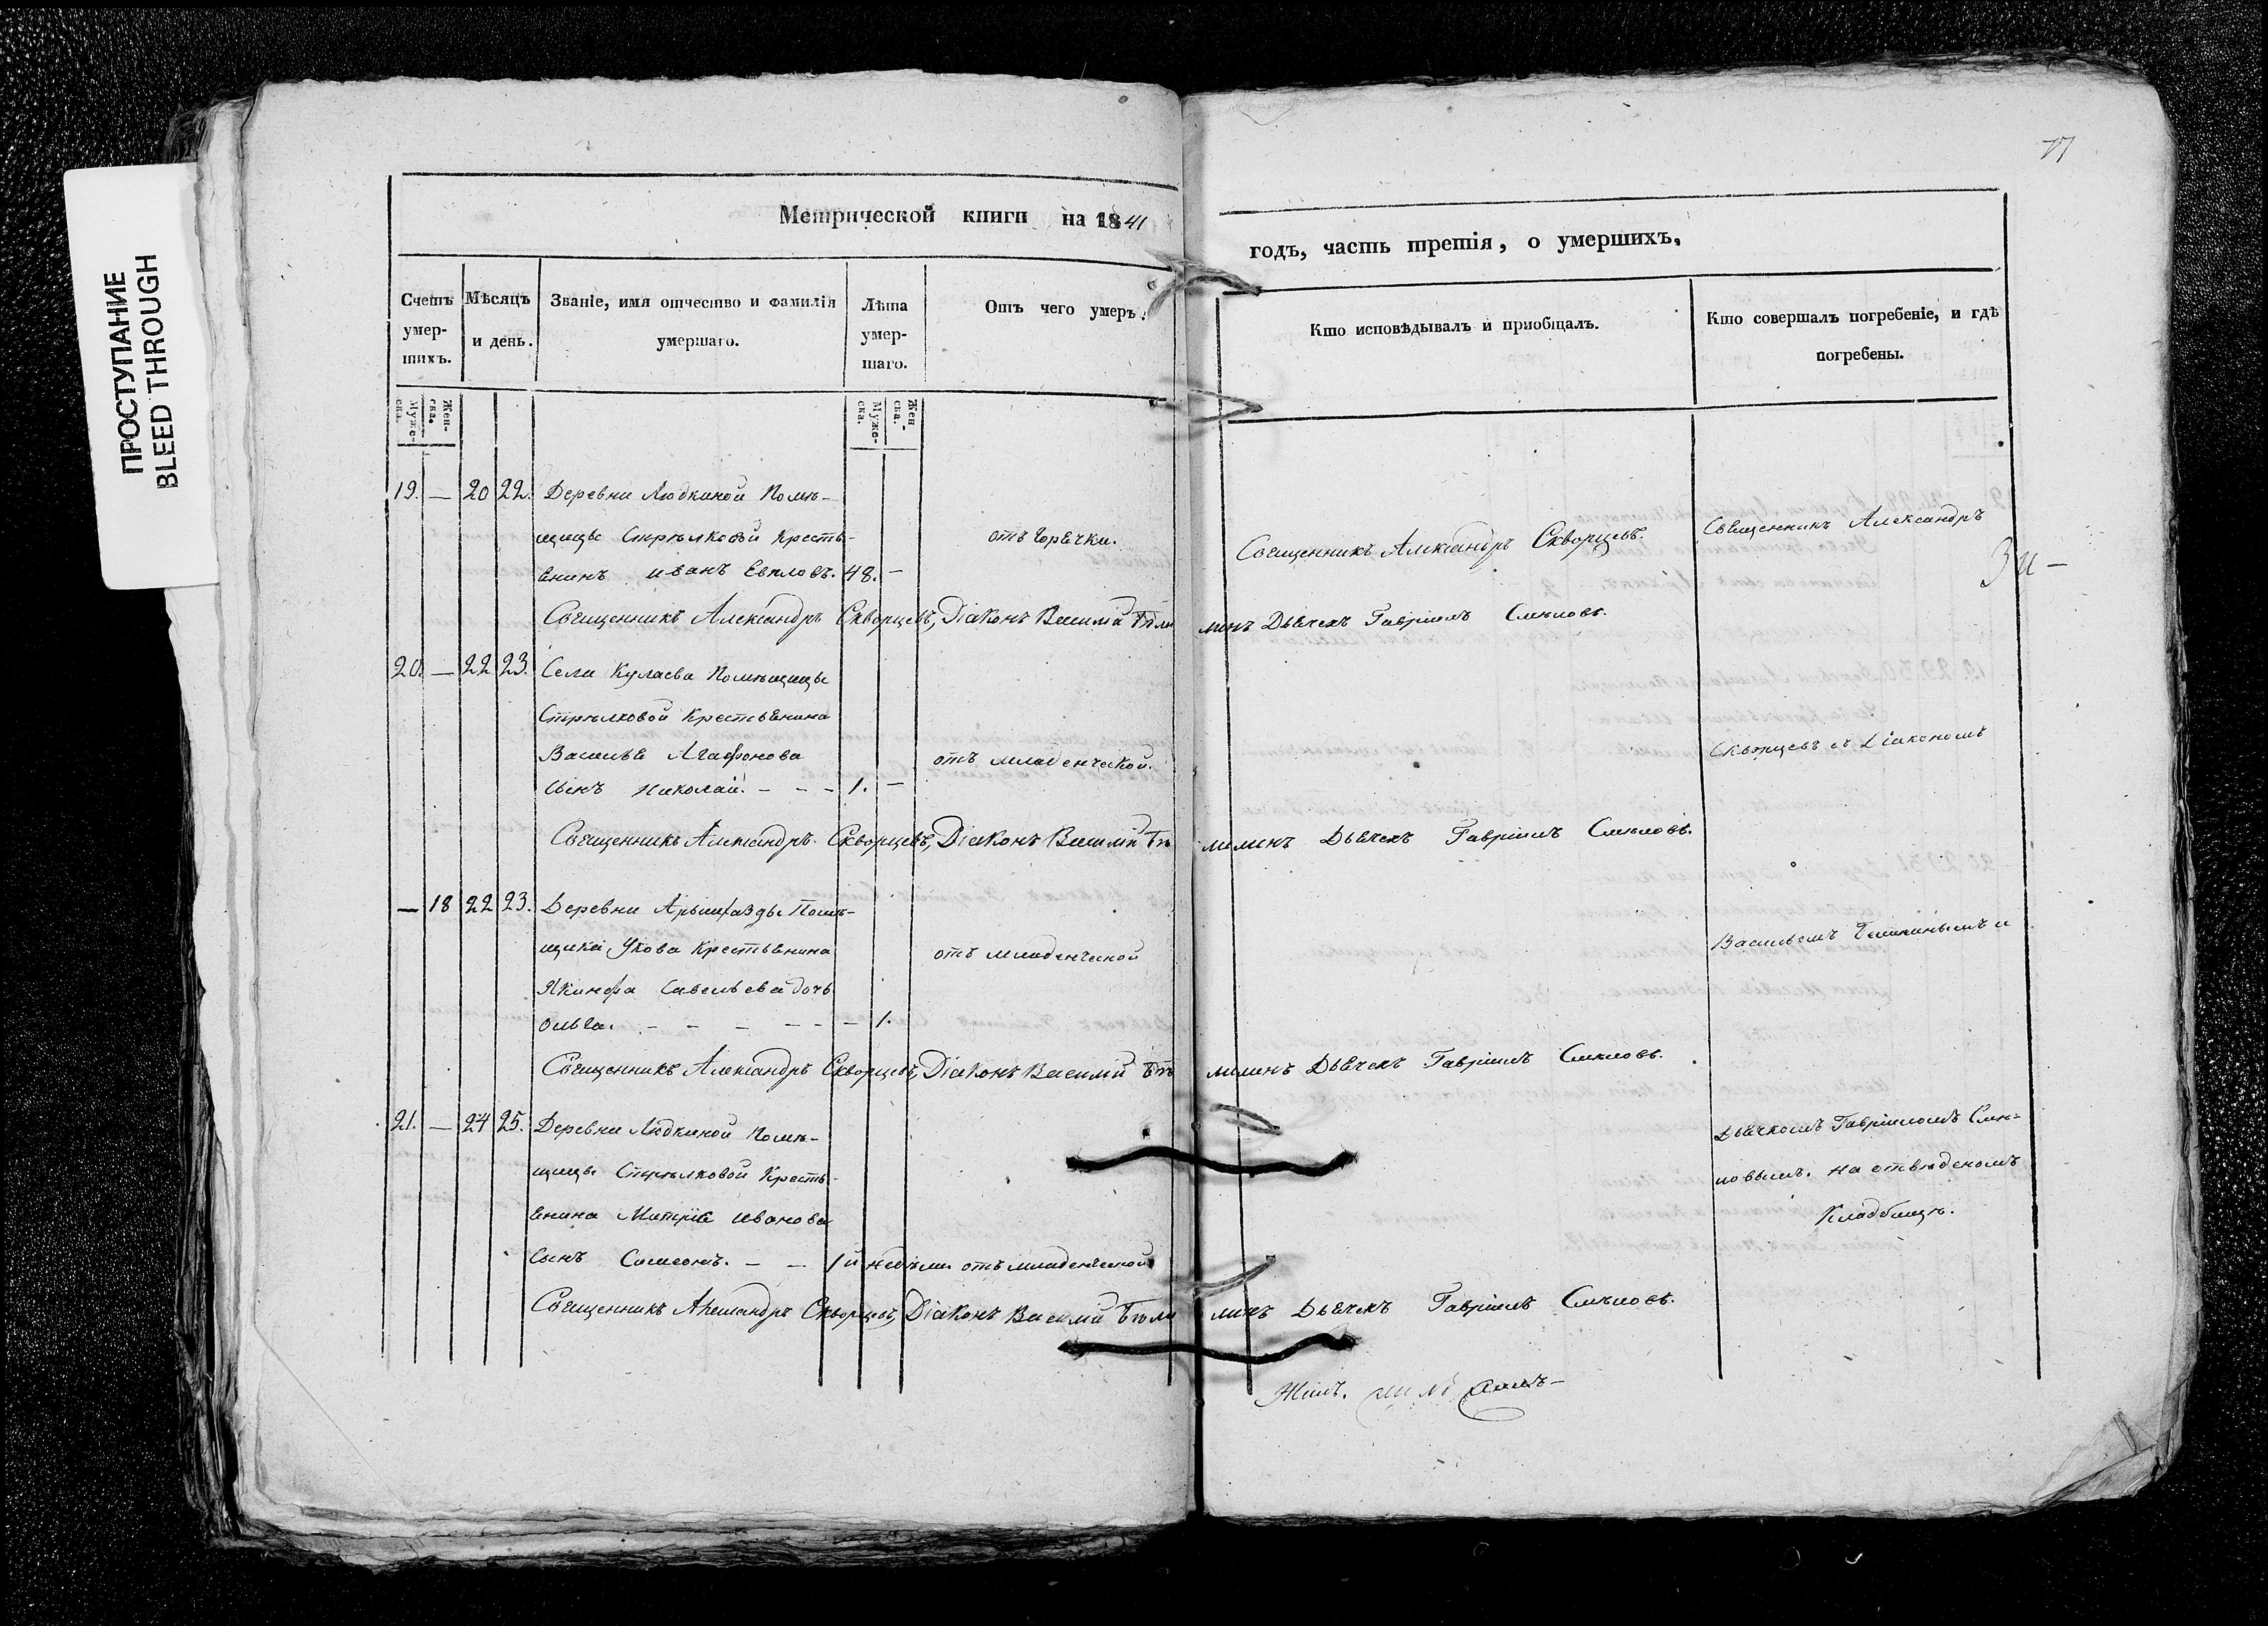 ПРОСТУПАНИЕ
BLEED THROUGH
77
Метрической книги на 1841
годъ, часть третія, о умершихъ,
Счетъ умер-шихъ.
Мѣсяцъ и день.
Званіе, имя отчество и фамилія умершаго.
Лѣта умер-шаго.
Отъ чего умеръ.
Кто исповѣдывалъ и пріобщалъ.
Кто совершалъ погребеніе, и гдѣ погребены.
Муже-ска. Жен-ска.
Муже-ска. Жен-ска.
19. — 20 22. Деревни Людкиной Помѣ-
щицы Стрѣлковой Кресть-
янинъ Иванъ Евпловъ. 48. —
отъ горячки.
Священникъ Александръ Скворцевъ.
Священникъ Александръ
Священникъ Александръ Скворцевъ, Діаконъ Василій Бѣлилинъ Дьячекъ Гавріилъ Смѣловъ.
20. — 22 23. Села Кулаева Помѣщицы
Стрѣлковой Крестьянина
Василья Агафонова
сынъ Николай. - - - 1. —
отъ младенческой.
Скворцевъ съ Діакономъ
Священникъ Александръ Скворцевъ, Діаконъ Василій Бѣлилинъ Дьячекъ Гавріилъ Смѣловъ.
— 18 22 23. Деревни Помѣ-
щика Крестьянина
Якинфа Савельева дочь
Ольга. - - - - - — 1.
отъ младенческой
Васильемъ Бѣлилинымъ и
Священникъ Александръ Скворцевъ, Діаконъ Василій Бѣлилинъ Дьячекъ Гавріилъ Смѣловъ.
21. — 24 25. Деревни Людкиной Помѣ-
щицы Стрѣлковой Кресть-
янина Митрія Иванова
сынъ Симеонъ. — — 1й недѣли отъ младенческой
Дьячкомъ Гавріиломъ Смѣ-
ловымъ. на отведеномъ
Кладбищѣ.
Священникъ Александръ Скворцевъ, Діаконъ Василій Бѣлилинъ Дьячекъ Гавріилъ Смѣловъ.